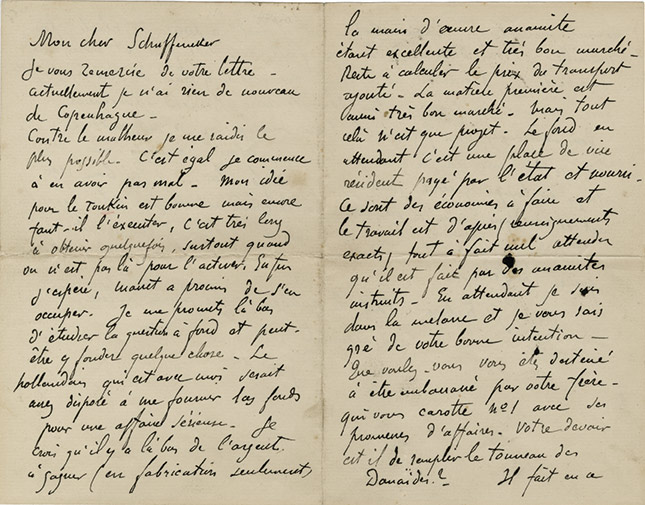 Mon cher Schuffenecker
Je vous remercie de votre lettre -
actuellement je n'ai rien de nouveau
de Copenhague -
Contre le malheur je me raidis le
plus possible. C'est égal je commence
à en avoir pas mal - Mon idée
pour le Tonkin est bonne mais encore
faut-il l'éxécuter, c'est très long
à obtenir quelquefois, surtout quand
on n'est pas là pour l'activer. Enfin
j'espère, Manet a promis de s'en
occuper - Je me promets là bas
d'étudier la question à fond et peut-
être y fonder quelque chose - Le
hollandais qui est avec moi serait
assez disposé à me fournir des fonds
pour une affaire sérieuse - Je
crois qu'il y a là bas de l'argent
à gagner (en fabrication seulement)
la main d'œuvre anamite
étant excellente et très bon marché -
Reste à calculer le prix du transport
ajouté - La matière première est
aussi très bon marché - Mais tout
celà n'est que projet - Le fond en
attendant c'est une place de vice
résident payé par l'état et nourri -
Ce sont des économies à faire et
le travail est d'après renseignements
exacts, tout à fait nul attendu
qu'il est fait par des anamites
instruits - En attendant je suis
dans la mélasse et je vous sais
gré de votre bonne intention -
Que voulez-vous vous êtes destiné
à être embarrassé par votre frère -
qui vous carotte n°1 avec ses
promesses d'affaires - Votre devoir
est il de remplir le tonneau des
Danaïdes? - Il fait en ce